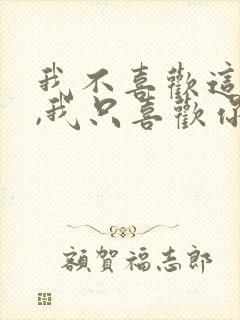 我不喜歡這
,我只喜歡你
額賀福志郎